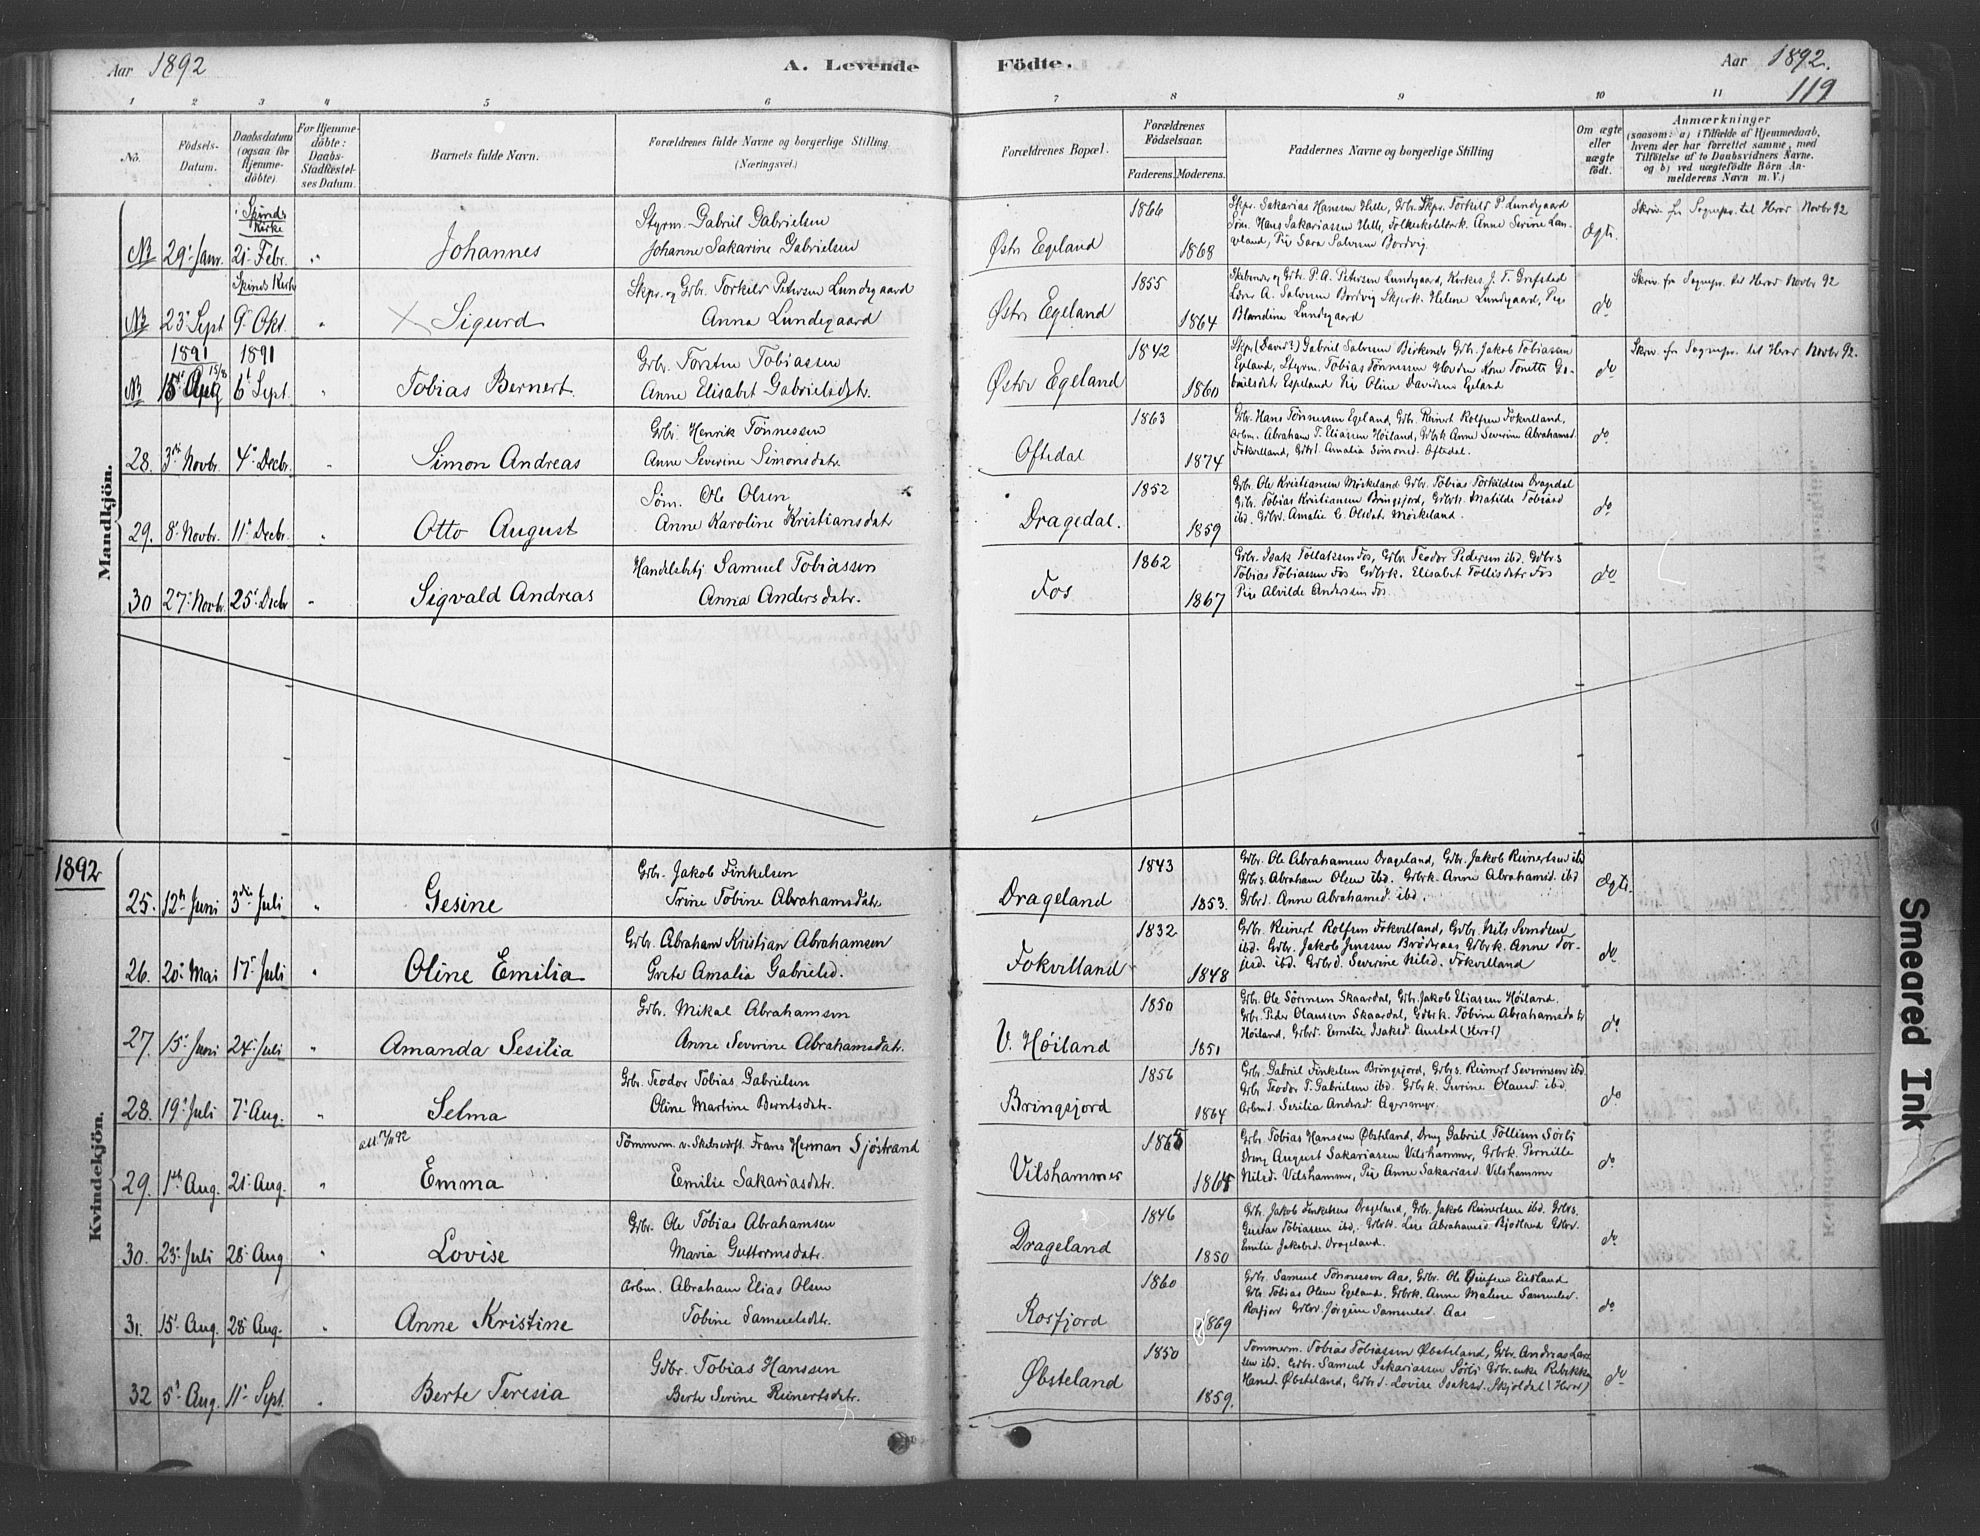 Aar 1892
A. Levende
Födte.
Aar 1892.
119
1 2 3 4 5 6 7 8 9 10 11
No.
Födsels-
Datum.
Daabsdatum
(ogsaa for
Hjemme-
döbte)
For Hjemme-
döbte:
Daabs-
Stadfæstel-
ses Datum.
Barnets fulde Navn.
Forældrenes fulde Navne og borgerlige Stilling
(Næringsvei.)
Forældrenes Bopæl.
Forældrenes
Födselsaar.
Faderens. Moderens.
Faddernes Navne og borgerlige Stilling
Om ægte
eller
uægte
födt.
Anmærkninger
(saasom: a) i Tilfælde af Hjemmedaab,
hvem der har forrettet samme, med
Tilföielse af to Daabsvidners Navne.
og b) ved uægtefödte Börn An-
melderens Navn m. V.)
Mandkjön.
Spinds
Kirke
NB 29 Janr. 21 Febr. Johannes
Styrm. Gabriel Gabrielsen
Johanne Sakarine Gabrielsen
Østr Egeland
1866
1868
Skpr. Sakarias Hanssen Helle, Grb. Skpr. Torkild P. Lundegaard
Søm. Hans Sakariassen Helle, Anne Serine
Pige Sara Salvesen Bordvig
Ægte.
Skriv. fr. Sognepr. til Herad Novbr 92
Spinds Kirke
NB 23 Sept 9 Okt. Sigurd
Skpr. og Grb. Torkild Petersen Lundegaard
Anna Lundegaard
Østr Egeland
1855
1864
P. A. Petersen Lundegaard, J. T. Grefsted
Lærer A. Salvesen Bordvig Helene Lundegaard, Pige
Blandina Lundegaard
do
Skriv. fr. Sognepr. til Herad Novbr 92
1891 1891
NB 15 Aug 15/8 6 Sept. Tobias Bernert.
Grb. Torsten Tobiassen
Anne Elisabet Gabrielsdtr.
Østre Egeland
1842
1860
Skpr. (David?) Gabriel Salvesen Birkenes Grb. Jakob Tobiassen
Egeland, Styrm. Tobias Tønnessen Kone Tonette
Espeland Pige Oline Davidsen Egeland
do
Skriv. fr. Sognepr. til Herad Novbr 92.
28. 3die Novbr. 4 Decbr. Simon Andreas
Grbr. Henrik Tönnessen
Anne Severine Simonsdatr.
Oftedal
1863
1874
Grb. Hans Tönnessen Egeland, Grb. Reinert Rolfsen Fokvilland,
Arbm. Abraham T. Eliassen Höiland, Gdbrk Anne Severine Abrahamsd.
Fokvilland, Amalia Simonsd. Oftedal.
do
29. 8 Novbr. 11 Decbr. Otto August
Söm. Ole Olsen
Anne Karoline Kristiansdatr
Dragedal.
1852
1859
Grb. Ole Kristiansen Mörkeland Grb. Tobias Torkildsen Dragedal
Grb. Tobias Kristiansen Bringsjord, Gdbrk. Matilde Tobiasd
ibd. Amalie C. Olsdatr Mörkeland.
do
30 27 Novbr. 25 Decbr Sigvald Andreas
Handelsbetj Samuel Tobiassen
Anna Andersdatr.
Fos
1862
1867
Grbr. Isak Tollaksen Fos, Grbr. Teodor Pedersen ibd. Gdbrs
Tobias Tobiassen Fos Gdbrk. Elisabet Tollisdatr Fos
Pige Alvilde Anderssen Fos
do
1892
Kvindekjön.
25. 12te Juni 3die Juli Gesine
Grbr. Jakob Finkelsen
Trine Tobine Abrahamsdatr.
Drageland
1843
1853.
Grbr. Ole Abrahamsen Drageland, Gdbr. Jakob Reinertsen ibd
Grbrs. Abraham Olsen ibd. Gdbrk. Anne Abrahamsd. ibd
Grbrd. Anne Abrahamsd. ibd.
Ægte.
26. 20 Mai 17 Juli Oline Emilia
Grbr. Abraham Kristian Abrahamsen
Grete Amalia Gabrielsd.
Fokvilland
1832
1848
Grbr. Reinert Rolfsen Fokvilland, Gdbr. Nils Svendsen
ibd. Gdbr. Jakob Jenssen Brödraas Gdbrk. Anne Tor-
jusd. ibd. Gdbrd. Severine Nilsd. Fokvilland
do
27. 15 Juni 24 Juli Amanda Sesilia
Grbr. Mikal Abrahamsen
Anne Severine Abrahamsdatr.
V. Höiland
1850
1851
Grbr. Ole Sörensen Skaardal, Gdbr. Jakob Eliassen Höiland.
Grbr. Peder Olaussen Skaardal, Gdbrk. Tobine Abrahamsdatr
Höiland, Grbrd. Emilie Isaksd. Austad (Herad)
do
28. 19 Juli 7 Aug. Selma
Grbr. Teodor Tobias Gabrielsen
Oline Martine Berntsdatr.
Bringsjord
1856
1864
Grbr. Gabriel Finkelsen Bringsjord, Grbrs. Reinert Severinsen ibd.
Grbr Teodor T. Gabrielsen ibd. Gdbrk. Gurine Olausd ibd
Arbmd. Serilia Andersd. Agersmyr.
do
att. 17/11 92
29. 1ste Aug. 21 Aug. Emma
Tömmerm. v. Skibsværft. Frans Herman Sjöstrand
Emilie Sakariasdatr.
Vilshammer
1865
1865
Grbr. Tobias Hanssen Øbsteland, Dreng Gabriel Tollisen Sörli
Dreng August Sakariassen Vilshammer, Gdbrk. Pernille
Nilsd. Vilshammer, Pige Anne Sakariasd. Vilshammer
do
30. 23 Juli 28 Aug Lovise
Grbr. Ole Tobias Abrahamsen
Maria Guttormsdatr.
Drageland
1846
1850
Grbr. Jakob Finkelsen Drageland, Grbr. Jakob Reinertsen ibd. Grbrs.
Gustav Tobiassen ibd. Gdbrk. Lise Abrahamsd. Bjotland Gdbrd.
Emilie Jakobsd. Drageland.
do
31. 15 Aug. 28 Aug. Anne Kristine
Arbm. Abraham Elias Olsen
Tobine Samuelsdtr.
Rosfjord
1860
1869
Grbr. Samuel Tönnessen Aas, Gdbr. Ole
Gdbr. Tobias Olsen Egeland. Gdbrk. Anne Malene Samuelsd.
Rosfjord Jörgine Samuelsd. Aas
do
32 5 Aug. 11 Sept. Berte Teresia
Gdbr. Tobias Hanssen
Berte Serine Reinertsdatr.
Øbsteland
1850
1859.
Tömmerm. Tobias Tobiassen Øbsteland, Gdbr. Andreas Lars-
sen ibd. Gdbr. Samuel Sakariassen Sörli Gdbr. enke Rebekka
Hansd. Øbsteland, Gdbrd. Lovise Isaksd. Skjoldal (Herad)
do
Smeared Ink